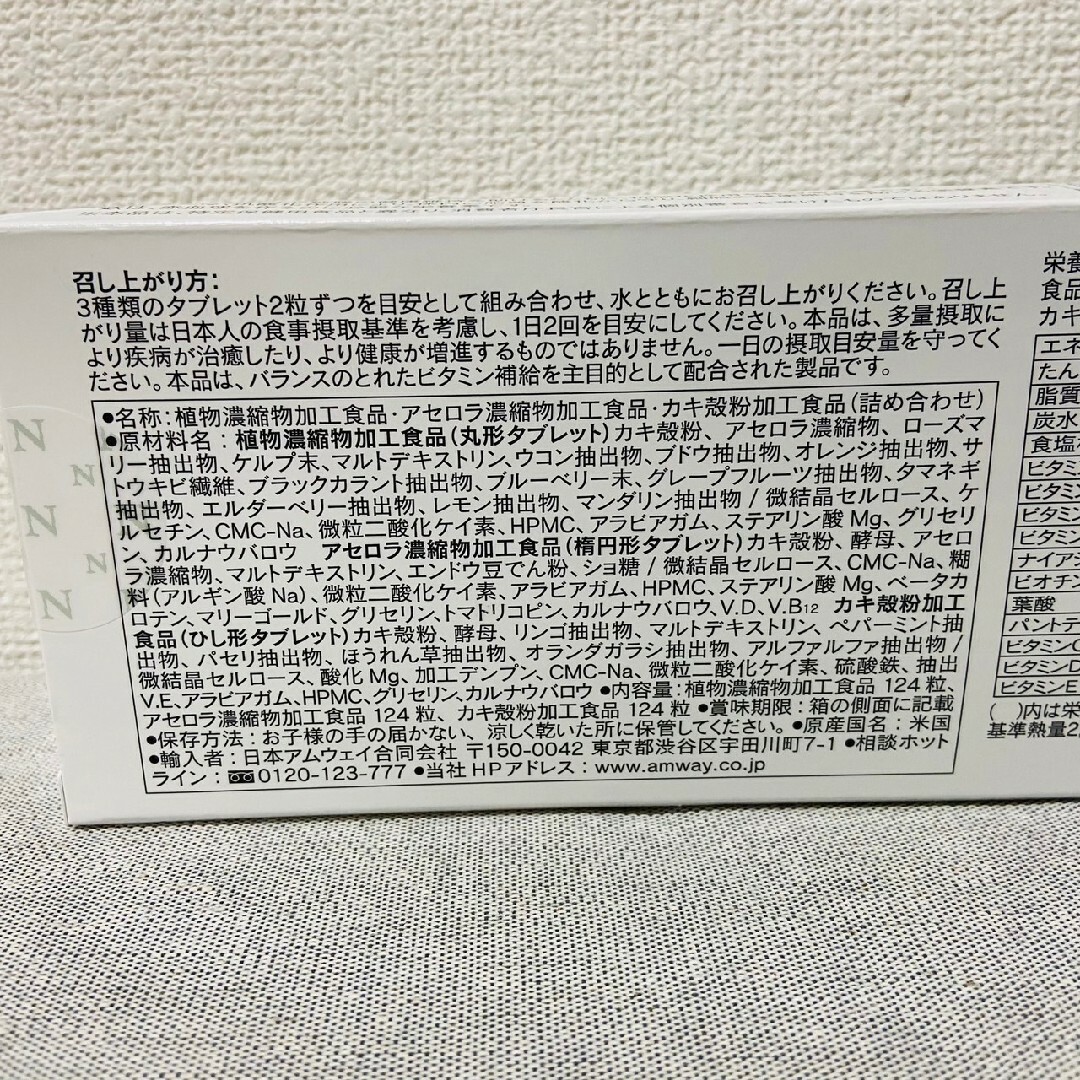 召し上がり方:
3種類のタブレット2粒ずつを目安として組み合わせ、水とともにお召し上がりください。召し上
がり量は日本人の食事摂取基準を考慮し、1日2回を目安にしてください。本品は、多量摂取に
より疾病が治癒したり、より健康が増進するものではありません。一日の摂取目安量を守ってく
ださい。本品は、バランスのとれたビタミン補給を主目的として配合された製品です。
●名称:植物濃縮物加工食品・アセロラ濃縮物加工食品・カキ殻粉加工食品(詰め合わせ)
●原材料名:植物濃縮物加工食品(丸形タブレット)カキ殻粉、アセロラ濃縮物、ローズマ
リー抽出物、ケルプ末、マルトデキストリン、ウコン抽出物、ブドウ抽出物、オレンジ抽出物、サ
トウキビ繊維、ブラックカラント抽出物、ブルーベリー末、グレープフルーツ抽出物、タマネギ
抽出物、エルダーベリー抽出物、レモン抽出物、マンダリン抽出物/微結晶セルロース、ケ
ルセチン、CMC-Na、微粒二酸化ケイ素、HPMC、アラビアガム、ステアリン酸Mg、グリセリ
ン、カルナウバロウ アセロラ濃縮物加工食品(楕円形タブレット)カキ殻粉、酵母、アセロ
ラ濃縮物、マルトデキストリン、エンドウ豆でん粉、ショ糖/微結晶セルロース、CMC-Na、糊
料(アルギン酸Na)、微粒二酸化ケイ素、アラビアガム、HPMC、ステアリン酸Mg、ベータカ
ロテン、マリーゴールド、グリセリン、トマトリコピン、カルナウバロウ、V.D、V.B12 カキ殻粉加工
食品(ひし形タブレット)カキ殻粉、酵母、リンゴ抽出物、マルトデキストリン、ペパーミント抽
出物、パセリ抽出物、ほうれん草抽出物、オランダガラシ抽出物、アルファルファ抽出物/
微結晶セルロース、酸化Mg、加工デンプン、CMC-Na、微粒二酸化ケイ素、硫酸鉄、抽出
V.E、アラビアガム、HPMC、グリセリン、カルナウバロウ●内容量:植物濃縮物加工食品124粒、
アセロラ濃縮物加工食品124粒、カキ殻粉加工食品124粒●賞味期限:箱の側面に記載
●保存方法:お子様の手の届かない、涼しく乾いた所に保管してください。●原産国名:米国
●輸入者:日本アムウェイ合同会社 〒150-0042 東京都渋谷区宇田川町7-1●相談ホット
ライン:0120-123-777●当社HPアドレス:www.amway.co.jp
N
N
N
N
N
栄養
食品
カキ
エネ
たん
脂質
炭水
食塩
ビタミ
ビタミ
ビタミ
ビタミ
ナイアシ
ビオチン
葉酸
パントテ
ビタミンC
ビタミンD
ビタミンE
( )内は栄
基準熱量2